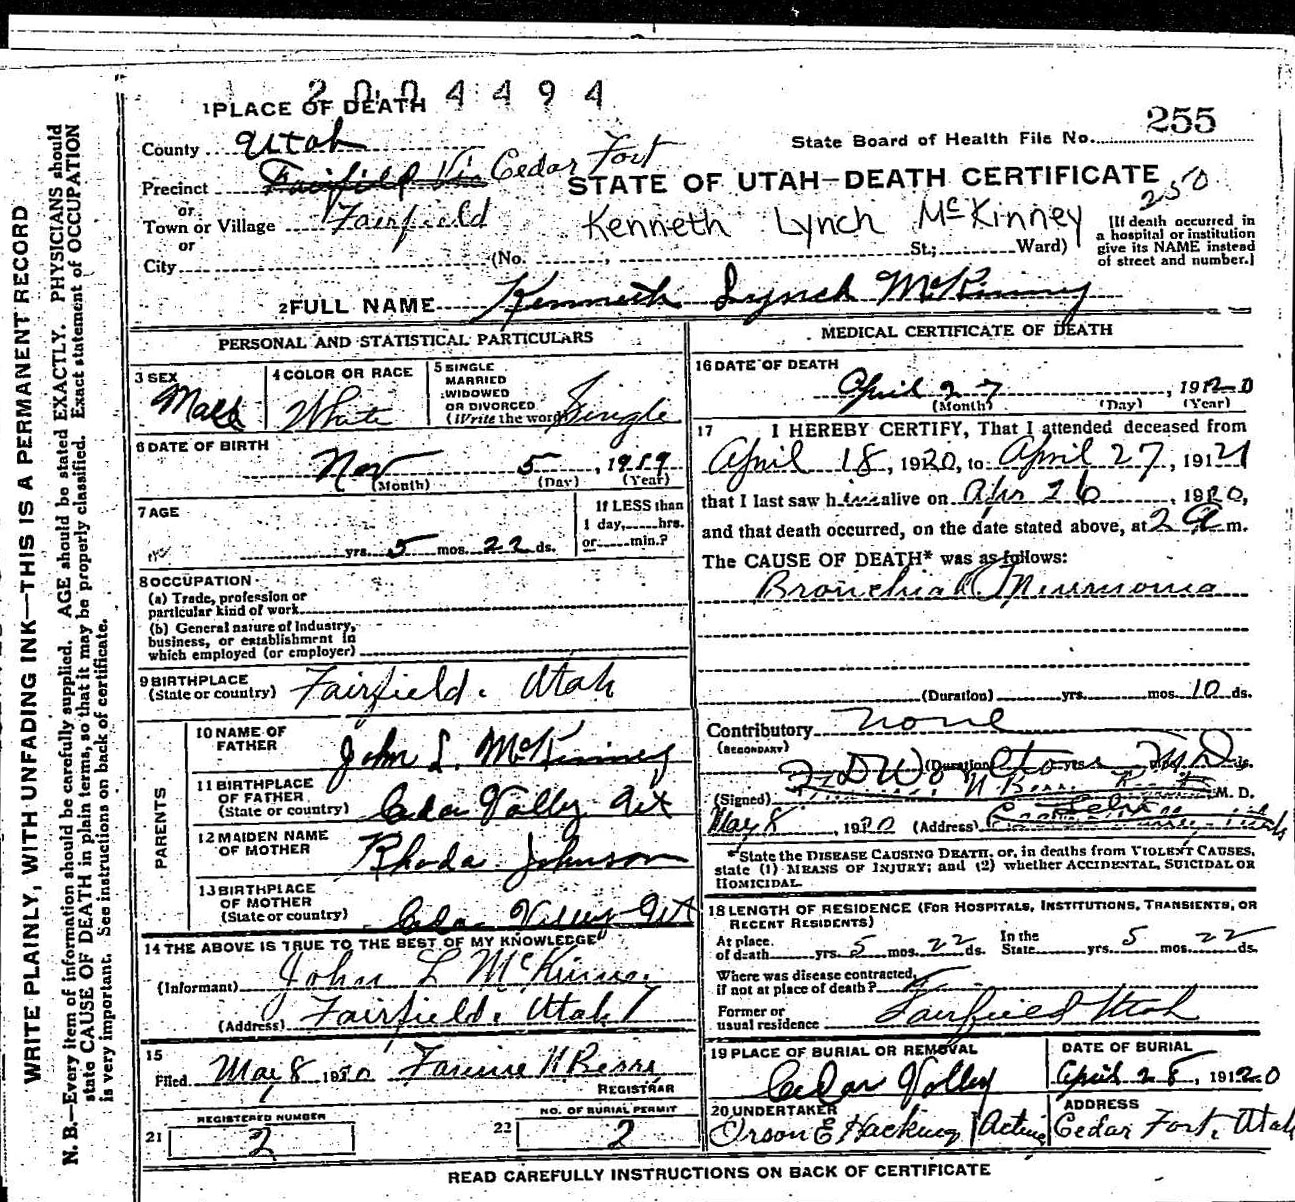 2004494
1 PLACE OF DEATH
255
State Board of Health File No.
County Utah
Precinct Fairfield Cedar Fort
STATE OF UTAH—DEATH CERTIFICATE
250
or
Town or Village Fairfield
Kenneth Lynch McKinney
or
City (No. St.; Ward)
[If death occurred in
a hospital or institution
give its NAME instead
of street and number.]
2 FULL NAME Kenneth Lynch McKinney
PERSONAL AND STATISTICAL PARTICULARS
3 SEX
Male
4 COLOR OR RACE
White
5 SINGLE
MARRIED
WIDOWED
OR DIVORCED
(Write the word) Single
6 DATE OF BIRTH
Nov 5, 1919
(Month) (Day) (Year)
7 AGE
yrs. 5 mos. 22 ds.
If LESS than
1 day, hrs.
or min.?
8 OCCUPATION
(a) Trade, profession or
particular kind of work
(b) General nature of Industry,
business, or establishment in
which employed (or employer)
9 BIRTHPLACE
(State or country) Fairfield, Utah
PARENTS
10 NAME OF
FATHER John L. McKinney
11 BIRTHPLACE
OF FATHER
(State or country) Cedar Valley Ut
12 MAIDEN NAME
OF MOTHER Rhoda Johnson
13 BIRTHPLACE
OF MOTHER
(State or country) Cedar Valley Ut
14 THE ABOVE IS TRUE TO THE BEST OF MY KNOWLEDGE
(Informant) John L McKinney
(Address) Fairfield, Utah
15
Filed May 8 1920
REGISTRAR
REGISTERED NUMBER
21 2
NO. OF BURIAL PERMIT
22 2
MEDICAL CERTIFICATE OF DEATH
16 DATE OF DEATH
April 27, 1920
(Month) (Day) (Year)
17 I HEREBY CERTIFY, That I attended deceased from
April 18, 1920, to April 27, 191
that I last saw h alive on Apr 26, 1920,
and that death occurred, on the date stated above, at 2 a m.
The CAUSE OF DEATH* was as follows:
Bronchial Pneumonia
(Duration) yrs. mos. 10 ds.
Contributory none
(SECONDARY)
(Duration) yrs. mos. ds.
(Signed) M. D.
May 8, 1920 (Address)
*State the DISEASE CAUSING DEATH, or, in deaths from VIOLENT CAUSES,
state (1) MEANS OF INJURY; and (2) whether ACCIDENTAL, SUICIDAL OR
HOMICIDAL.
18 LENGTH OF RESIDENCE (FOR HOSPITALS, INSTITUTIONS, TRANSIENTS, OR
RECENT RESIDENTS)
At place
of death yrs. 5 mos. 22 ds.
In the
State yrs. 5 mos. 22 ds.
Where was disease contracted,
if not at place of death?
Former or
usual residence Fairfield Utah
19 PLACE OF BURIAL OR REMOVAL
Cedar Valley
DATE OF BURIAL
April 28, 1920
20 UNDERTAKER
Orson E Hacking Acting
ADDRESS
Cedar Fort, Utah
READ CAREFULLY INSTRUCTIONS ON BACK OF CERTIFICATE
WRITE PLAINLY, WITH UNFADING INK—THIS IS A PERMANENT RECORD
N. B.—Every item of information should be carefully supplied. AGE should be stated EXACTLY. PHYSICIANS should
state CAUSE OF DEATH in plain terms, so that it may be properly classified. Exact statement of OCCUPATION
is very important. See instructions on back of certificate.